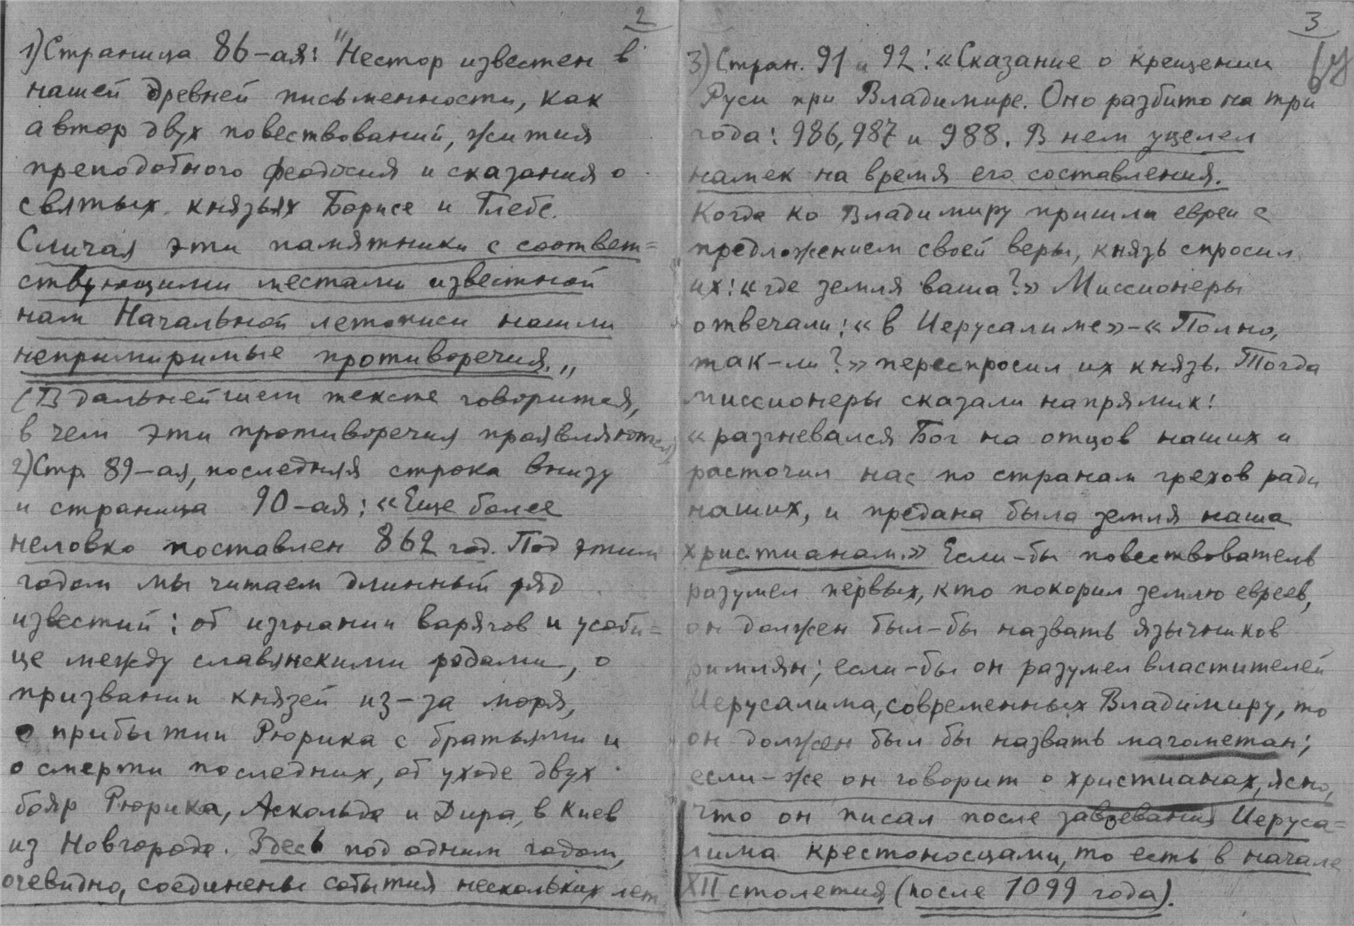 2
1) Страница 86-ая: "Нестор известен в
нашей древней письменности, как
автор двух повествований, жития
преподобного Феодосия и сказания о
святых князьях Борисе и Глебе.
Сличая эти памятники с соответ=
ствующими местами известной
нам Начальной летописи нашли
непримиримые противоречия.„
(В дальнейшем тексте говорится,
в чем эти противоречия проявляются)
2) Стр. 89-ая, последняя строка внизу
и страница 90-ая: «Еще более
неловко поставлен 862 год. Под этим
годом мы читаем длинный ряд
известий: об изгнании варягов и усоби=
це между славянскими родами, о
призвании князей из-за моря,
о прибытии Рюрика с братьями и
о смерти последних, об уходе двух
бояр Рюрика, Аскольда и Дира, в Киев
из Новгорода. Здесь под одним годом,
очевидно, соединены события нескольких лет
3
3) Стран. 91 и 92: «Сказание о крещении
Руси при Владимире. Оно разбито на три
года: 986, 987 и 988. В нем уцелел
намек на время его составления.
Когда ко Владимиру пришли евреи с
предложением своей веры, князь спросил
их: «где земля ваша?» Миссионеры
отвечали: «в Иерусалиме» - «Полно,
так-ли?» переспросил их князь. Тогда
миссионеры сказали напрямик:
«разгневался Бог на отцов наших и
расточил нас по странам грехов ради
наших, и предана была земля наша
христианам.» Если-бы повествователь
разумел первых, кто покорил землю евреев,
он должен был-бы назвать язычников
римлян; если-бы он разумел властителей
Иерусалима, современных Владимиру, то
он должен был бы назвать магометан;
если-же он говорит о христианах, ясно,
что он писал после завоевания Иеруса=
лима крестоносцами, то есть в начале
XII столетия (после 1099 года).